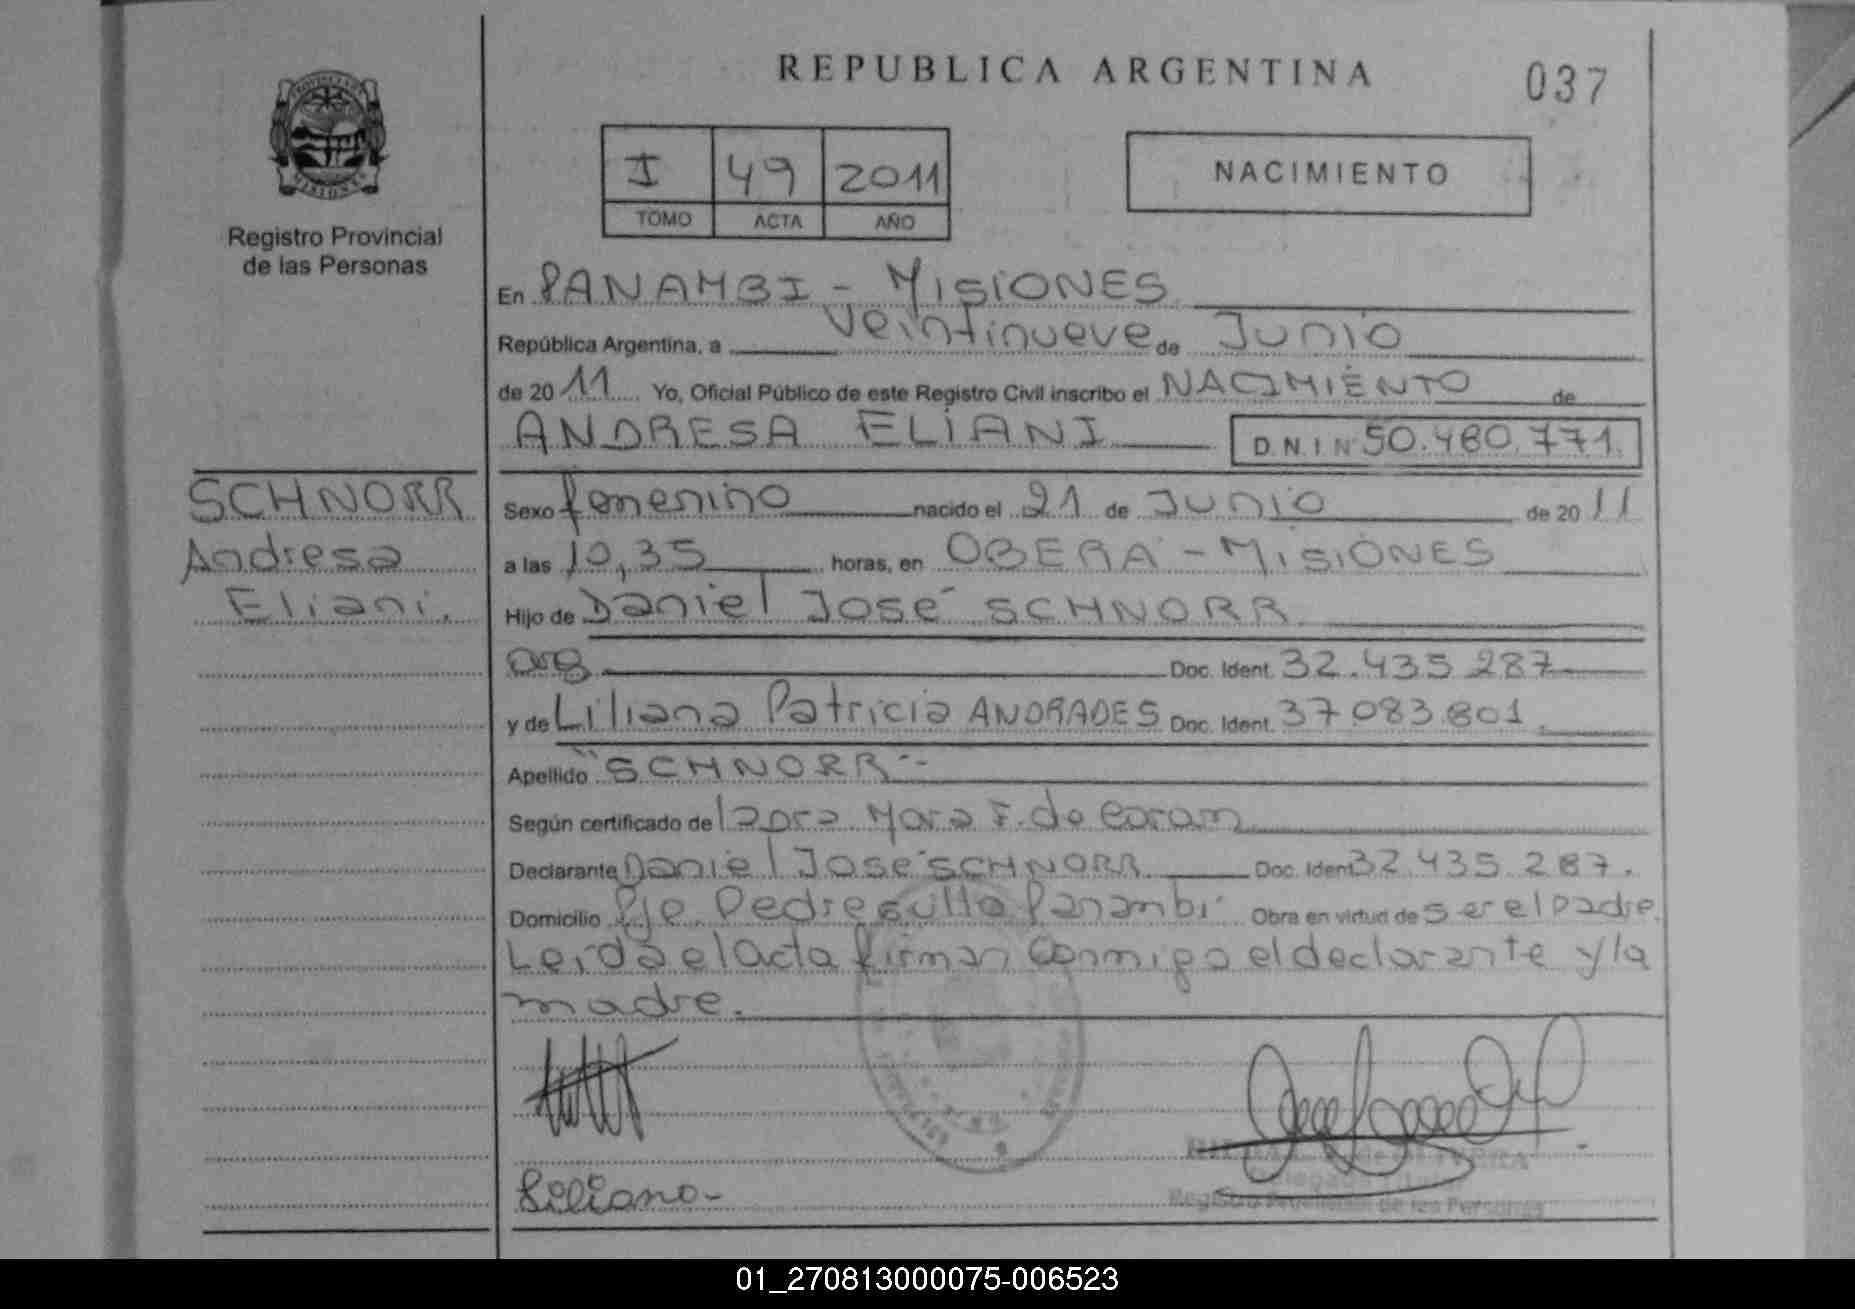 REPUBLICA ARGENTINA
037
PROVINCIA DE
MISIONES
Registro Provincial
de las Personas
I 49 2011
TOMO ACTA AÑO
NACIMIENTO
En PANAMBI - MISIONES
República Argentina, a veintinueve de Junio
de 20 11 Yo, Oficial Público de este Registro Civil inscribo el NACIMIENTO de
ANDRESA ELIANI D.N.I Nº 50.480.771.
SCHNORR
Andresa
Eliani.
Sexo femenino nacido el 21 de Junio de 20 11
a las 10,35 horas, en OBERA - MISIONES
Hijo de Daniel José SCHNORR
arg Doc. Ident. 32.435 287
y de Liliana Patricia ANDRADES Doc. Ident. 37.083.801
Apellido "SCHNORR"-
Según certificado de Mara F. de
Declarante Daniel José SCHNORR Doc. Ident 32.435.287.
Domicilio Pje Panambi Obra en virtud de ser el padre.
Leida el Acta firman Conmigo el declarante y la
madre.
Liliana-
Registro Provincial de las Personas
01_270813000075-006523